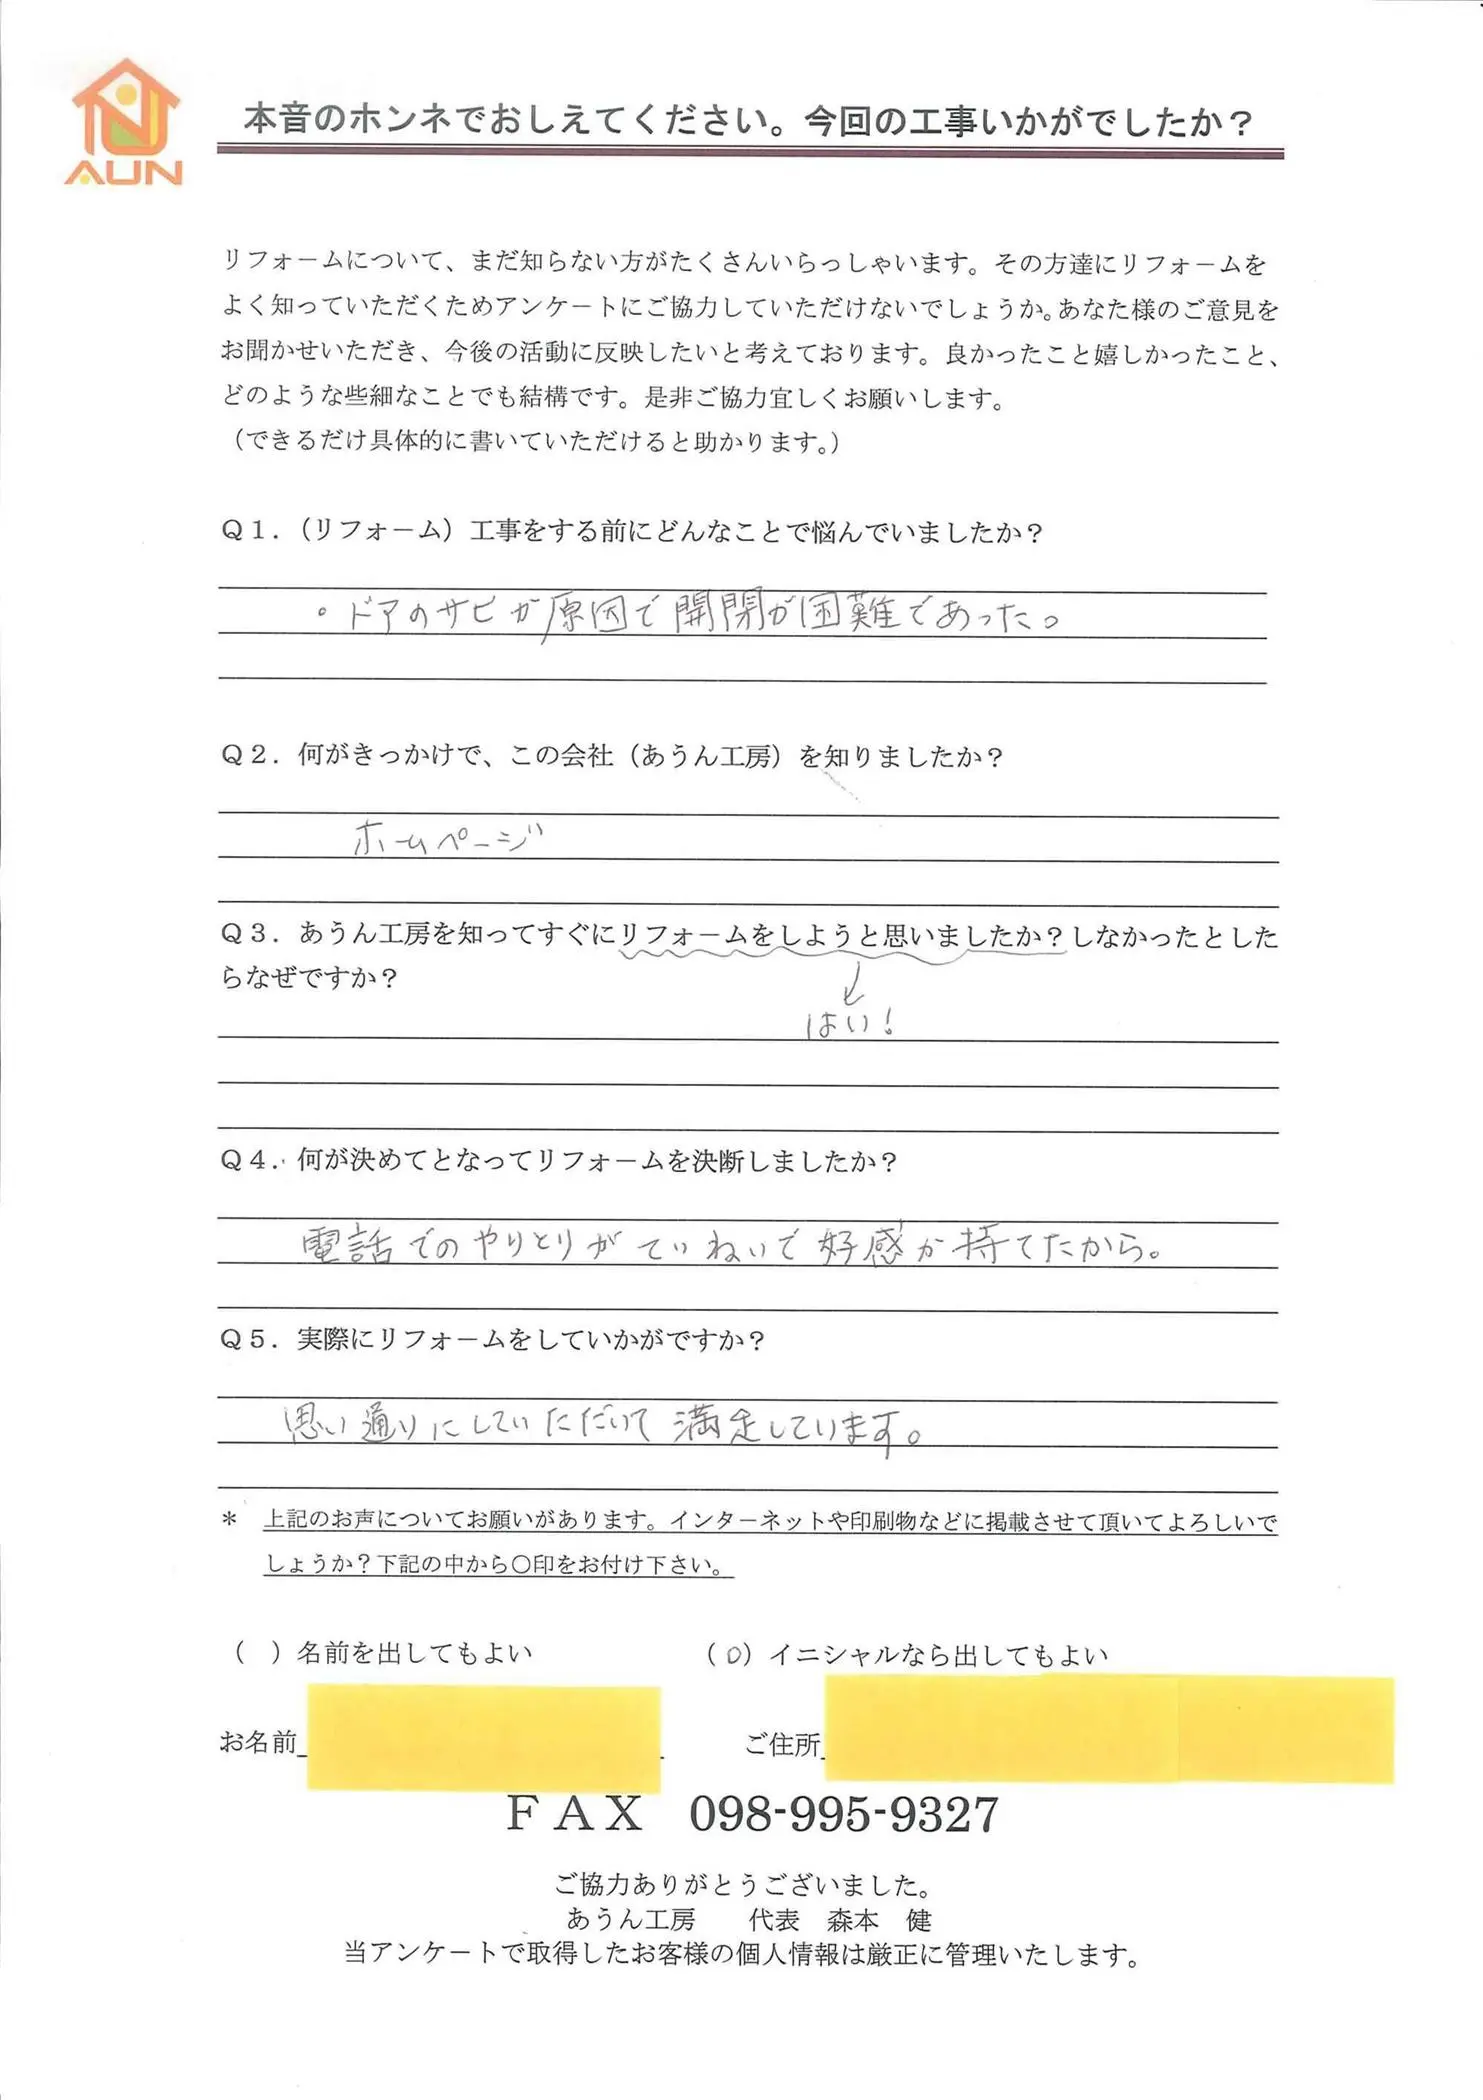 AUN
本音のホンネでおしえてください。今回の工事いかがでしたか？
リフォームについて、まだ知らない方がたくさんいらっしゃいます。その方達にリフォームを
よく知っていただくためアンケートにご協力していただけないでしょうか。あなた様のご意見を
お聞かせいただき、今後の活動に反映したいと考えております。良かったこと嬉しかったこと、
どのような些細なことでも結構です。是非ご協力宜しくお願いします。
（できるだけ具体的に書いていただけると助かります。）
Ｑ１．（リフォーム）工事をする前にどんなことで悩んでいましたか？
・ドアのサビが原因で開閉が困難であった。
Ｑ２．何がきっかけで、この会社（あうん工房）を知りましたか？
ホームページ
Ｑ３．あうん工房を知ってすぐにリフォームをしようと思いましたか？しなかったとした
らなぜですか？
はい！
Ｑ４．何が決めてとなってリフォームを決断しましたか？
電話でのやりとりがていねいで好感が持てたから。
Ｑ５．実際にリフォームをしていかがですか？
思い通りにしていただいて満足しています。
＊ 上記のお声についてお願いがあります。インターネットや印刷物などに掲載させて頂いてよろしいで
しょうか？下記の中から〇印をお付け下さい。
（ ）名前を出してもよい （０）イニシャルなら出してもよい
お名前 ご住所
ＦＡＸ 098-995-9327
ご協力ありがとうございました。
あうん工房 代表 森本 健
当アンケートで取得したお客様の個人情報は厳正に管理いたします。